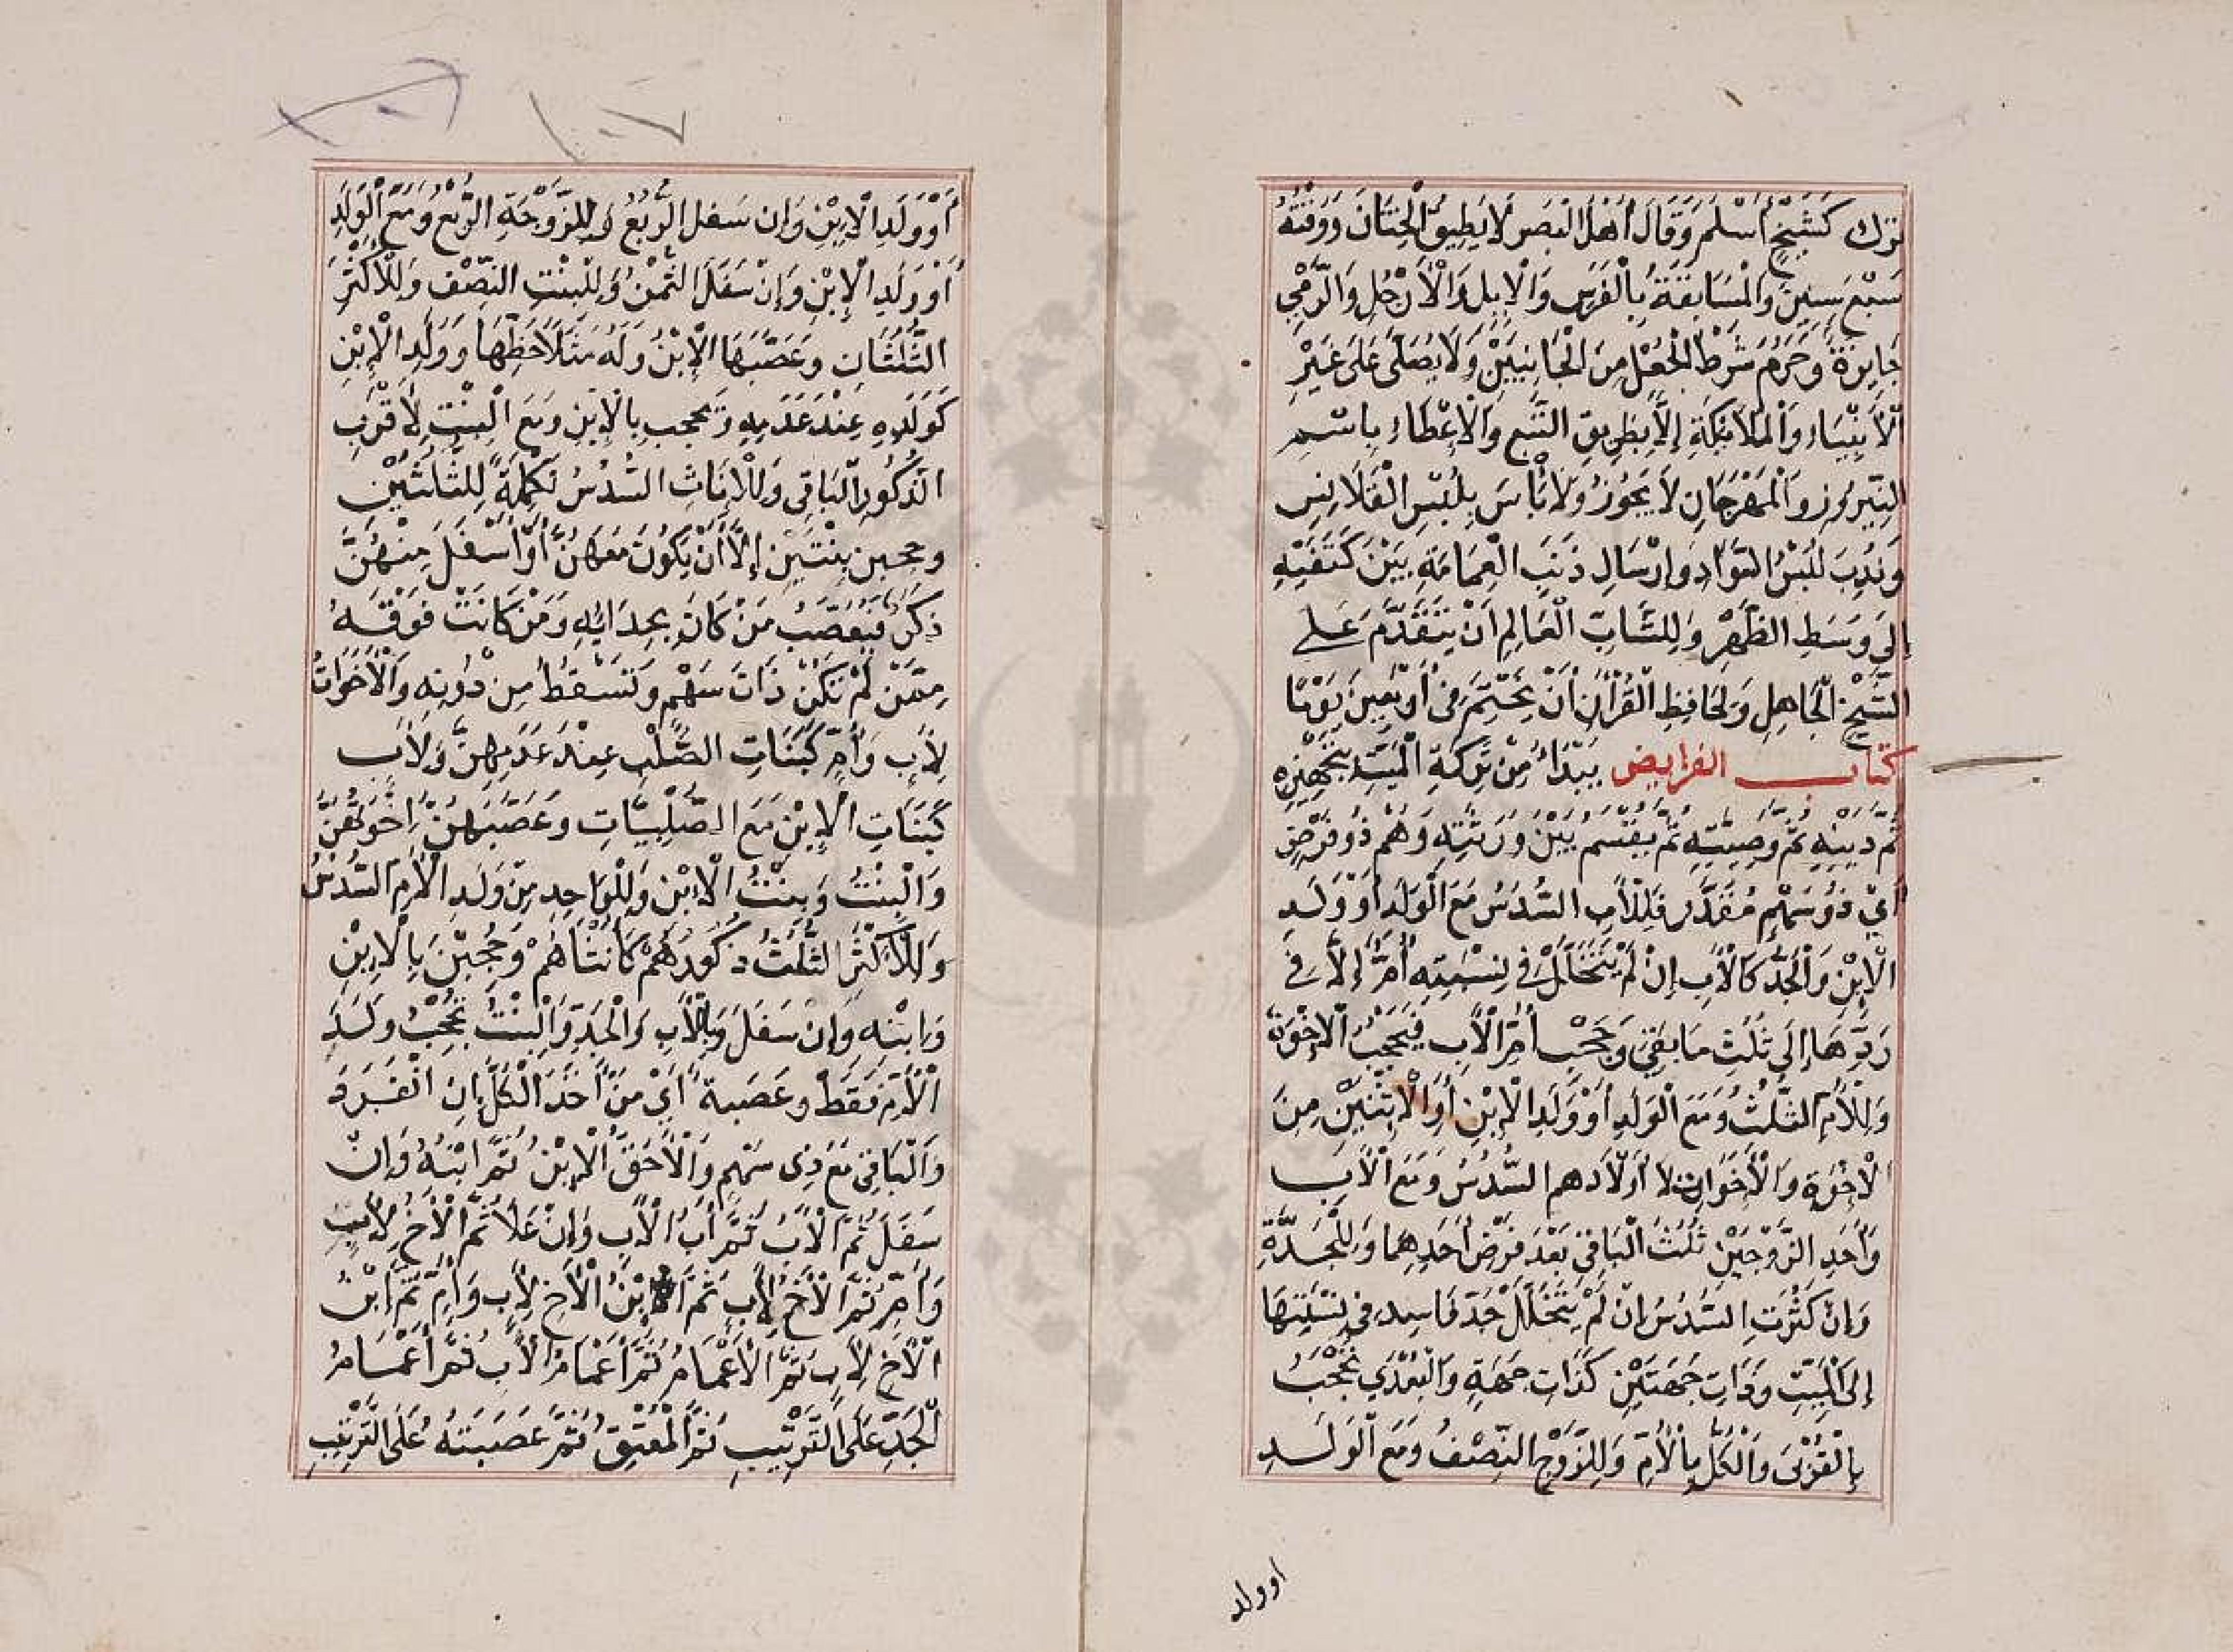 ترك كَشَيْخٍ أَسْلَمَ وَقَالَ أَهْلُ الْبَصَرِ لَا يُطِيقُ الْخِتَانَ وَوَقْتُهُ
سَبْعُ سِنِينَ وَالْمُسَابَقَةُ بِالْفَرَسِ وَالْإِبِلِ وَالْأَرْجُلِ وَالرَّمْيِ
جَايِزَةٌ وَحَرُمَ شَرْطُ الْجُعْلِ مِنَ الْجَانِبَيْنِ وَلَا يُصَلَّى عَلَى غَيْرِ
الْأَنْبِيَاءِ وَالْمَلَائِكَةِ إِلَّا بِطَرِيقِ التَّبَعِ وَالْإِعْطَاءُ بِاسْمِ
النَّيْرُوزِ وَالْمَهْرَجَانِ لَا يَجُوزُ وَلَا بَأْسَ بِلُبْسِ الْقَلَانِسِ
وَنُدِبَ لُبْسُ السَّوَادِ وَإِرْسَالُ ذَنَبِ الْعِمَامَةِ بَيْنَ كَتَفَيْهِ
إِلَى وَسَطِ الظَّهْرِ وَلِلشَّابِّ الْعَالِمِ أَنْ يَتَقَدَّمَ عَلَى
الشَّيْخِ الْجَاهِلِ وَلِحَافِظِ الْقُرْآنِ أَنْ يَخْتِمَ فِي أَرْبَعِينَ يَوْمًا
كتاب الفرايض يَبْدَأُ مِنْ تَرِكَةِ الْمَيِّتِ بِتَجْهِيزِهِ
ثُمَّ دَيْنِهِ ثُمَّ وَصِيَّتِهِ ثُمَّ يُقْسَمُ بَيْنَ وَرَثَتِهِ وَهُمْ ذُو فَرْضٍ
أَيْ ذُو سَهْمٍ مُقَدَّرٍ فَلِلْأَبِ السُّدُسُ مَعَ الْوَلَدِ أَوْ وَلَدِ
الْإِبْنِ وَالْجَدُّ كَالْأَبِ إِنْ لَمْ يَتَخَلَّلْ فِي نِسْبَتِهِ أُمٌّ إِلَّا فِي
رَدِّهَا إِلَى ثُلُثِ مَا بَقِيَ وَحَجْبِ أُمِّ الْأَبِ فَيَحْجُبُ الْإِخْوَةَ
وَلِلْأُمِّ الثُّلُثُ وَمَعَ الْوَلَدِ أَوْ وَلَدِ الْإِبْنِ أَوِ الْإِثْنَيْنِ مِنَ
الْإِخْوَةِ وَالْأَخَوَاتِ لا أولادهم السُّدُسُ وَمَعَ الْأَبِ
وَأَحَدِ الزَّوْجَيْنِ ثُلُثُ الْبَاقِي بَعْدَ فَرْضِ أَحَدِهِمَا وَلِلْجَدَّةِ
وَإِنْ كَثُرَتِ السُّدُسُ إِنْ لَمْ يَتَخَلَّلْ جَدٌّ فَاسِدٌ فِي نِسْبَتِهَا
إِلَى الْمَيِّتِ وَذَاتُ جِهَتَيْنِ كَذَاتِ جِهَةٍ وَالْبُعْدَى تُحْجَبُ
بِالْقُرْبَى وَالْكُلُّ بِالْأُمِّ وَلِلزَّوْجِ النِّصْفُ وَمَعَ الْوَلَدِ
اوولد
أَوْ وَلَدِ الْإِبْنِ وَإِنْ سفل الرُّبُعُ وَلِلزَّوْجَةِ الرُّبُعُ وَمَعَ الْوَلَدِ
أَوْ وَلَدِ الْإِبْنِ وَإِنْ سَفَلَ الثُّمُنُ وَلِلْبِنْتِ النِّصْفُ وَلِلْأَكْثَرِ
الثُّلُثَانِ وَعَصَّبَهَا الْإِبْنُ وَلَهُ مِثْلَا حَظِّهَا وَوَلَدُ الْإِبْنِ
كَوَلَدِهِ عِنْدَ عَدَمِهِ وَتُحجب بِالْإِبْنِ وَمَعَ الْبِنْتِ لِأَقْرَبِ
الذُّكُورِ الْبَاقِي وَلِلْإِنَاثِ السُّدُسُ تَكْمِلَةً لِلثُّلُثَيْنِ
وحجبن بِبِنْتَيْنِ إِلَّا أَنْ يَكُونَ مَعَهُنَّ أَوْ أَسْفَلَ مِنْهُنَّ
ذَكَرٌ فَيُعَصِّبُ مَنْ كَانَ بِحِذَائِهِ وَمَنْ كَانَتْ فَوْقَهُ
مِمَّنْ لَمْ تَكُنْ ذَاتَ سَهْمٍ وَتَسْقُطُ مِنْ دُونِهِ وَالْأَخَوَاتُ
لِأَبٍ وَأُمٍّ كَبَنَاتِ الصُّلْبِ عِنْدَ عَدَمِهِنَّ وَلِأَبٍ
كَبَنَاتِ الْإِبْنِ مَعَ الصُّلْبِيَّاتِ وَعَصَّبَهُنَّ إِخْوَتُهُنَّ
وَالْبِنْتُ وَبِنْتُ الْإِبْنِ وَلِلْوَاحِدِ مِنْ وَلَدِ الْأُمِّ السُّدُسُ
وَلِلْأَكْثَرِ الثُّلُثُ ذُكُورُهُمْ كَإِنَاثِهِمْ وَحُجِبْنَ بِالْإِبْنِ
وَابْنِهِ وَإِنْ سَفَلَ وَبِالْأَبِ وَالْجَدِّ وَالْبِنْتُ تَحْجُبُ وَلَدَ
الْأُمِّ فَقَطْ وَعَصَبَةٌ أَيْ مَنْ أَخَذَ الْكُلَّ إِنِ انْفَرَدَ
وَالْبَاقِي مَعَ ذِي سَهْمٍ وَالْأَحَقُّ الْإِبْنُ ثُمَّ ابْنُهُ وَإِنْ
سَفَلَ ثُمَّ الْأَبُ ثُمَّ أَبُ الْأَبِ وَإِنْ عَلَا ثُمَّ الْأَخُ لِأَبٍ
وَأُمٍّ ثُمَّ الْأَخُ لِأَبٍ ثُمَّ ابْنُ الْأَخِ لِأَبٍ وَأُمٍّ ثُمَّ ابْنُ
الْأَخِ لِأَبٍ ثُمَّ الْأَعْمَامُ ثُمَّ أَعْمَامُ الْأَبِ ثُمَّ أَعْمَامُ
الْجَدِّ عَلَى التَّرْتِيبِ ثُمَّ الْمُعْتِقُ ثُمَّ عَصَبَتُهُ عَلَى التَّرْتِيبِ